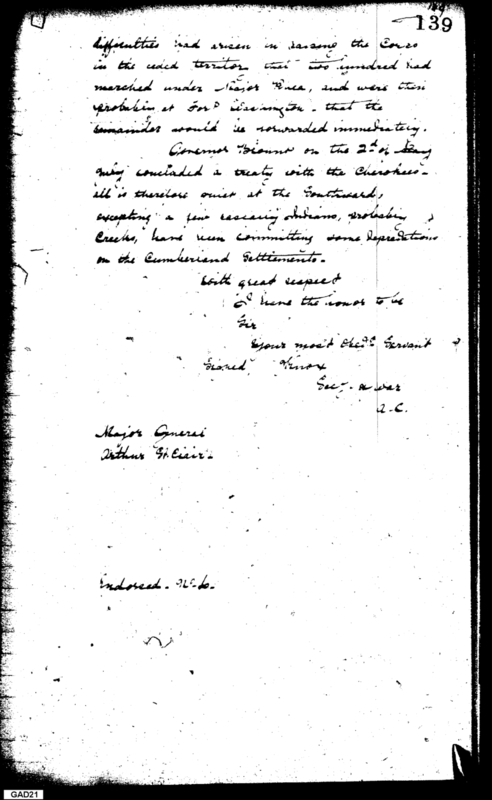 139
difficulties had arisen in raising the Corps
in the ceded territory that two hundred had
marched under Major Rhea, and were then
probably at Fort Washington - that the
remainder would be forwarded immediately.
Governor Blount on the 2d of May
July concluded a treaty with the Cherokees -
all is therefore quiet at the Southward,
excepting a few rascally Indians, probably
Creeks, have been committing some depredations
on the Cumberland Settlements -
With great respect
I have the honor to be
Sir
Your most Obedt Servant
Signed Knox
Secy of war
Major General
Arthur St. Clair -
Endorsed - No. 6 -
GAD21